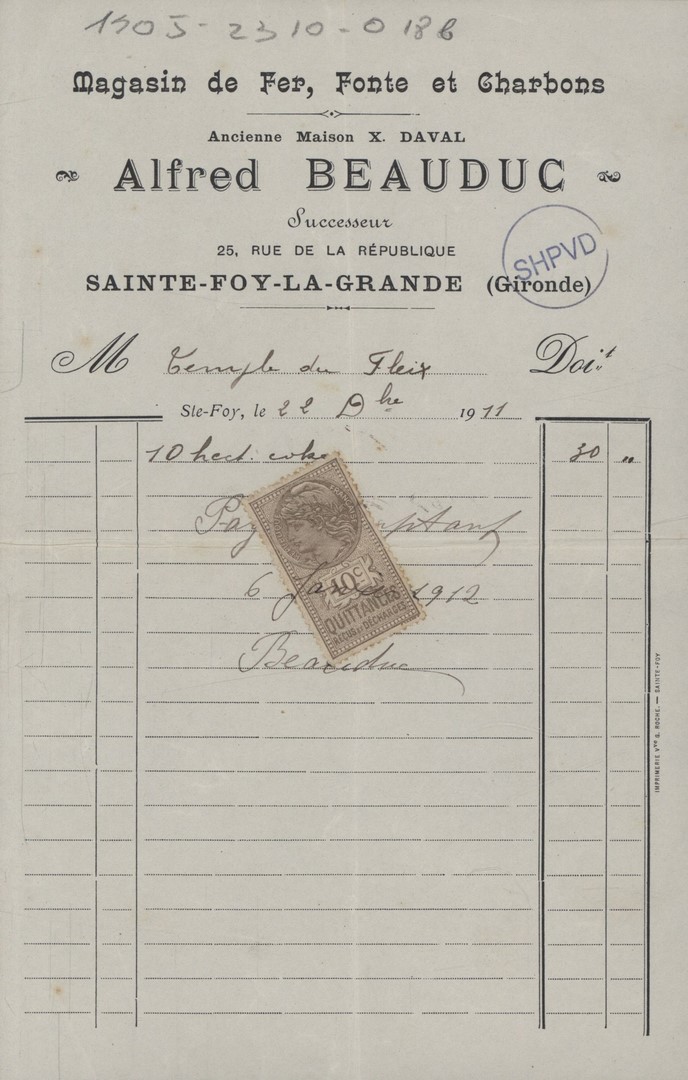 1905-2310-018b
Magasin de Fer, Fonte et Charbons
Ancienne Maison X. DAVAL
Alfred BEAUDUC
Successeur
25, RUE DE LA RÉPUBLIQUE
SHPVD
SAINTE-FOY-LA-GRANDE (Gironde)
M Temple du Fleix Doit
Ste-Foy, le 22 Dbre 1911
10 hect. coke 30 "
10 c
QUITTANCES
REÇUS & DÉCHARGES
6 Janvier 1912
Beauduc
IMPRIMERIE Vve S. ROCHE. — SAINTE-FOY